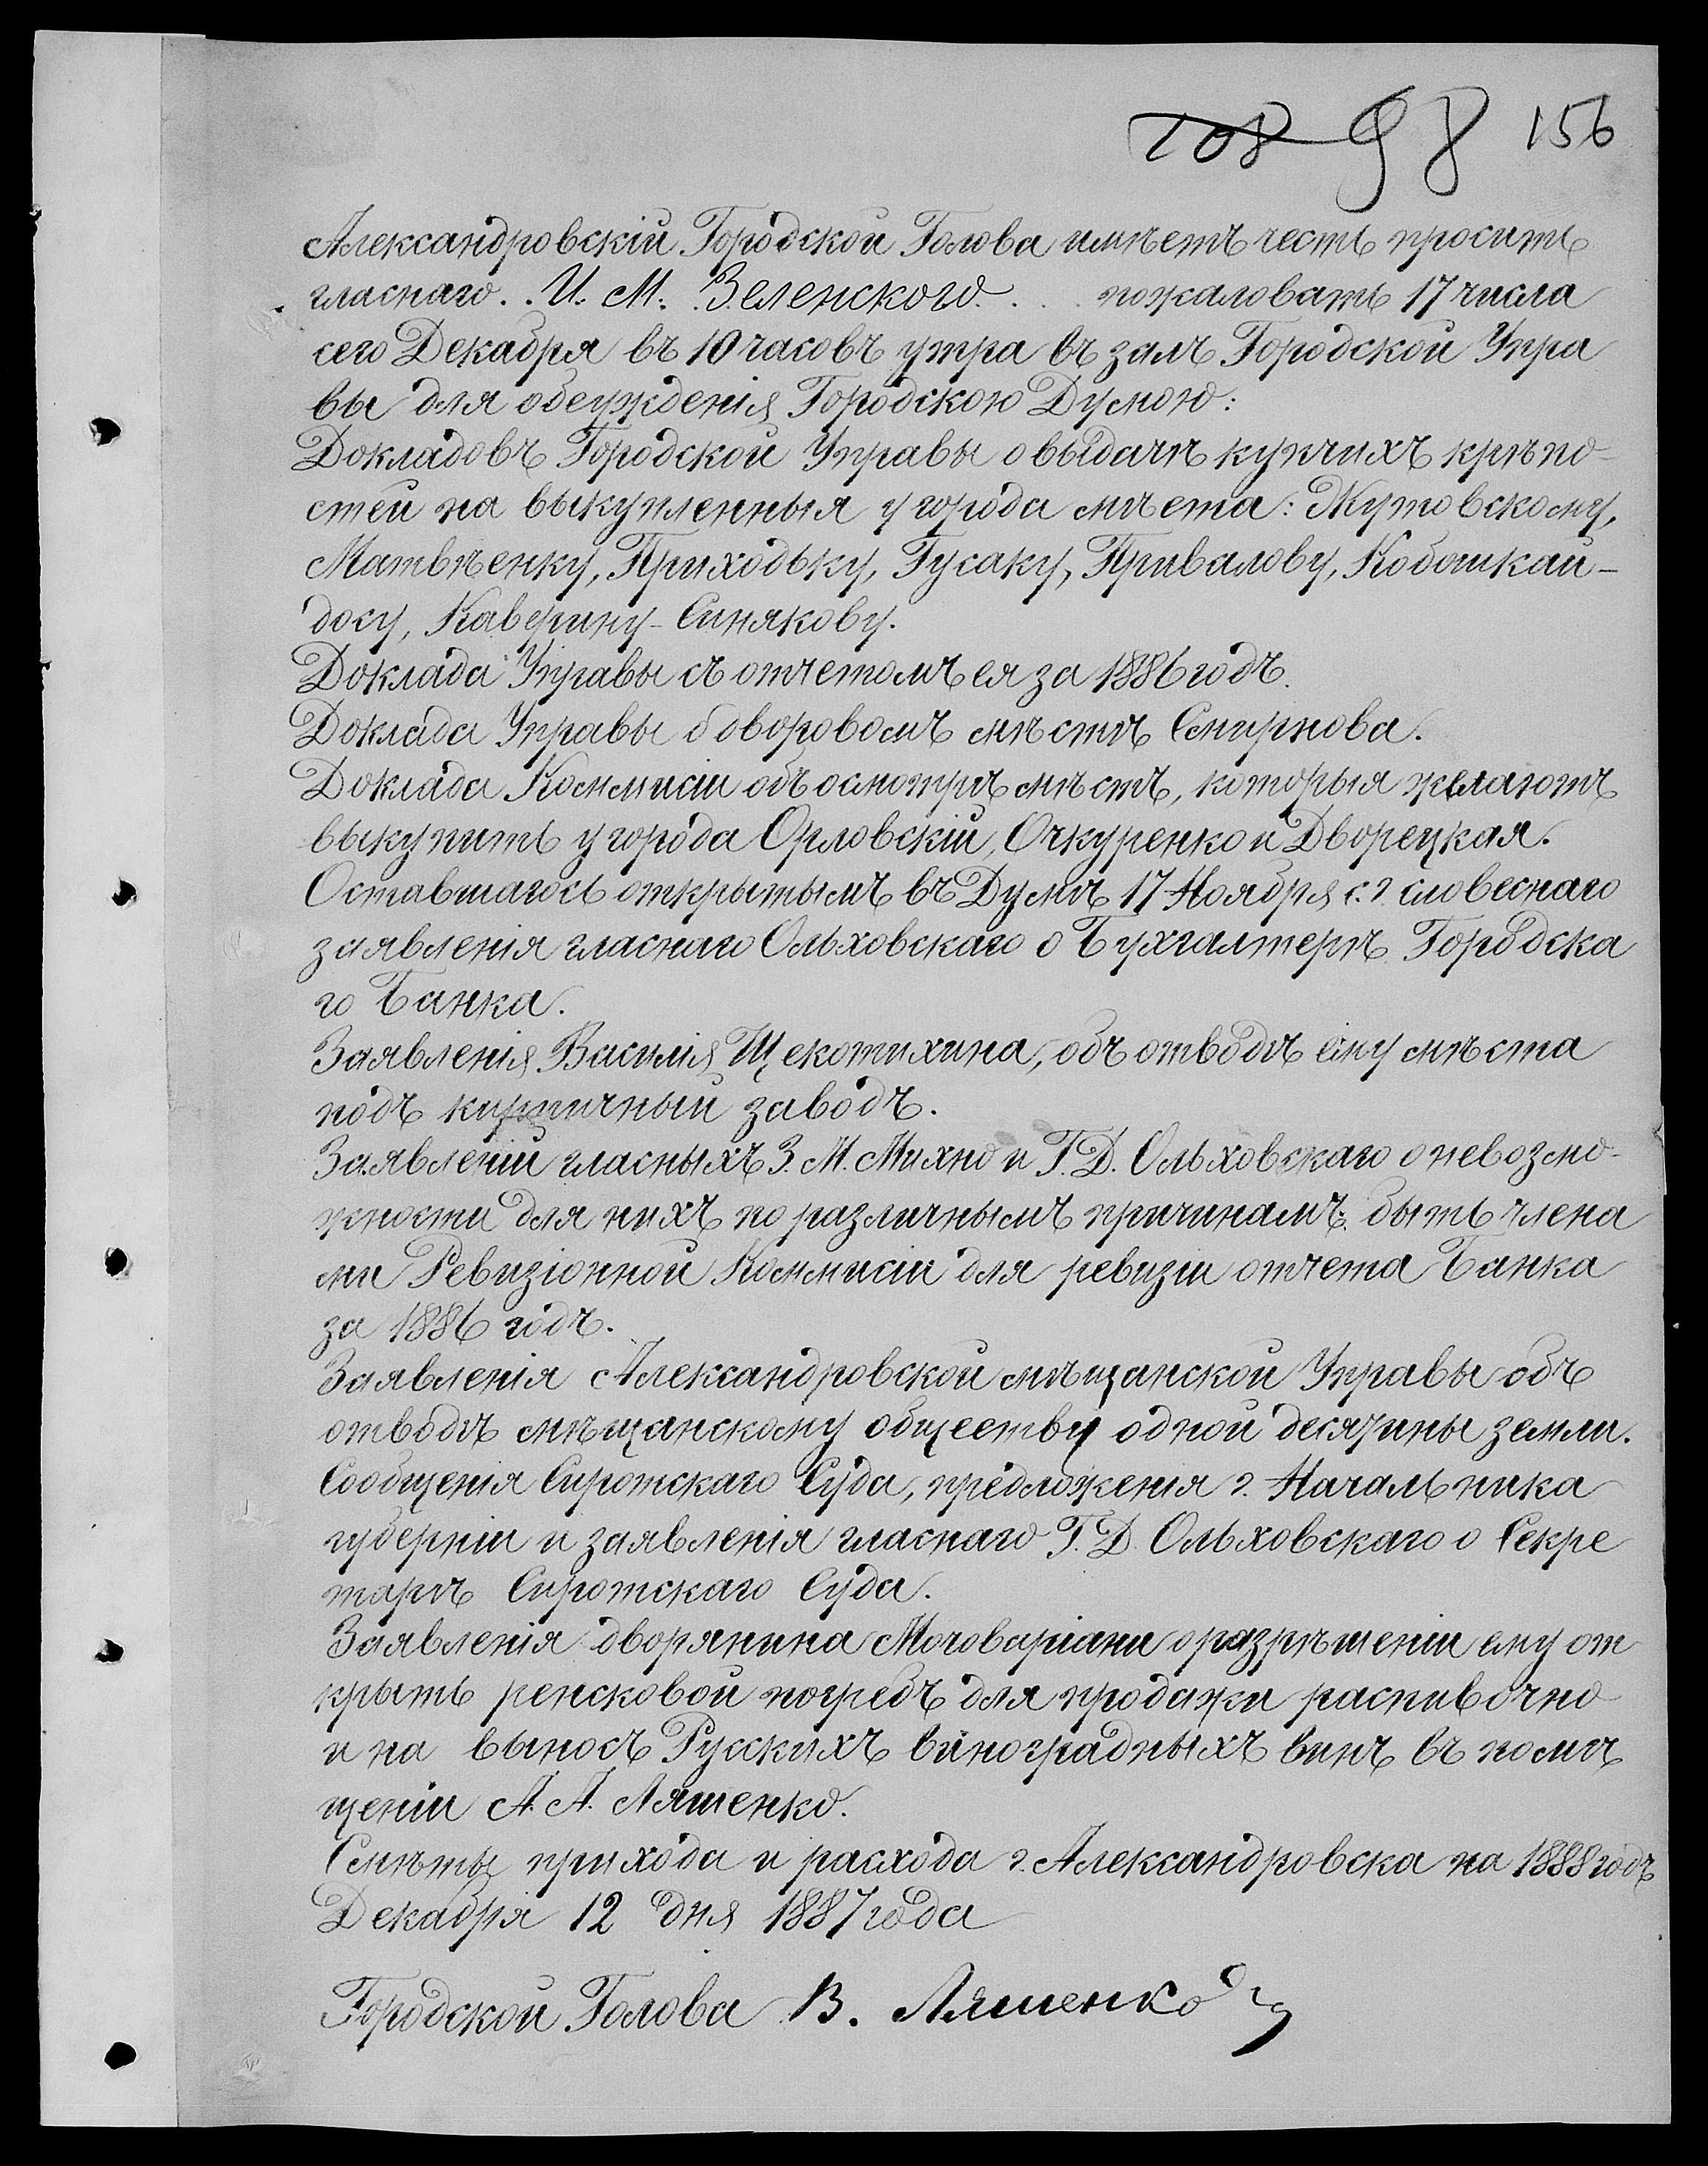 108 98 156
Александровскій Городской Голова имѣетъ честь просить
гласнаго . . И. М. Зеленского . . . . пожаловать 17 числа
сего Декабря въ 10 часовъ утра въ залъ Городской Упра
вы для обсужденія Городскою Думою:
Докладовъ Городской Управы о выдачѣ купчихъ крѣпо-
стей на выкупленныя у города мѣста: Жутовскому,
Матвѣенку, Приходьку, Гусаку, Привалову, Кобошкай-
досу, Каверину-Синякову.
Доклада Управы съ отчетомъ ея за 1886 годъ.
Доклада Управы о дворовомъ мѣстѣ Смирнова.
Доклада Коммисіи объ осмотрѣ мѣстъ, которыя желаютъ
выкупить у города Орловскій, Очкуренко и Дворецкая.
Оставшагось открытымъ въ Думѣ 17 Ноября с. г. словеснаго
заявленія гласнаго Ольховскаго о Бухгалтерѣ Городска
го Банка.
Заявленія Василія Щекотихина, объ отводѣ ему мѣста
подъ кирпичный заводъ.
Заявленій гласныхъ З. М. Михно и Г. Д. Ольховскаго о невозмо-
жности для нихъ по различнымъ причинамъ быть члена
ми Ревизіонной Коммисіи для ревизіи отчета Банка
за 1886 годъ.
Заявленія Александровской мѣщанской Управы объ
отводѣ мѣщанскому обществу одной десятины земли.
Сообщенія Сиротскаго Суда, предложенія г. Начальника
губерніи и заявленія гласнаго Г. Д. Ольховскаго о Секре
тарѣ Сиротскаго Суда.
Заявленія дворянина Мочоваріани о разрѣшеніи ему от
крыть ренсковой погребъ для продажи распивочно
и на выносъ Русскихъ виноградныхъ винъ въ помѣ
щеніи А. А. Ляшенко.
Смѣты прихода и расхода г. Александровска на 1888 годъ
Декабря 12 дня 1887 года
Городской Голова В. Ляшенко